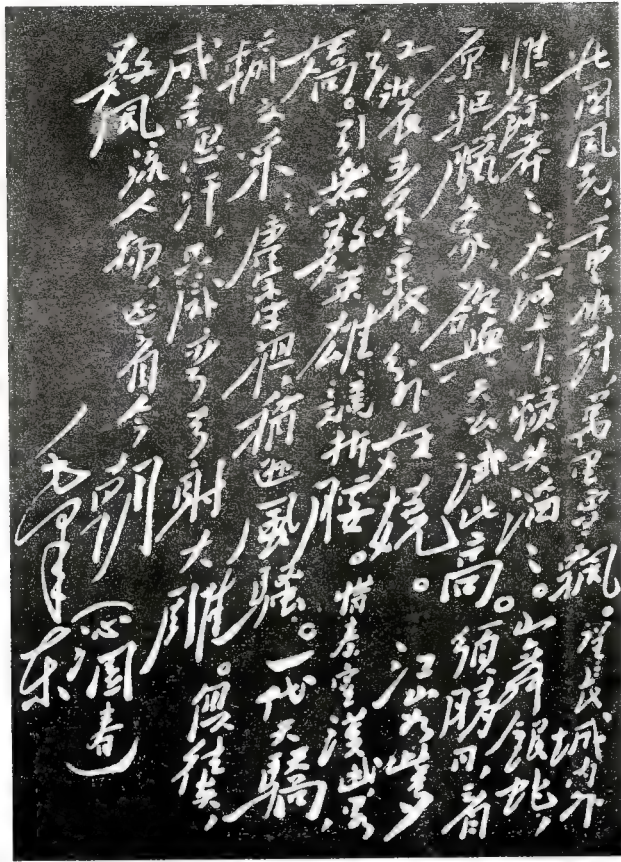 北国風光，千里冰封，萬里雪飘。望長城内外
惟餘莽々，大河上下，頓失滔々。山舞銀蛇，
原驱臘象，欲與天公試比高。須晴日，看
红装素裹，分外妖嬈。江山如此多
嬌。引無數英雄競折腰。惜秦皇漢武，略
輸文采，唐宗宋祖，稍逊風騷。一代天驕，
成吉思汗，只識弯弓射大雕。俱往矣，
數風流人物，还看今朝（沁園春）
毛泽东